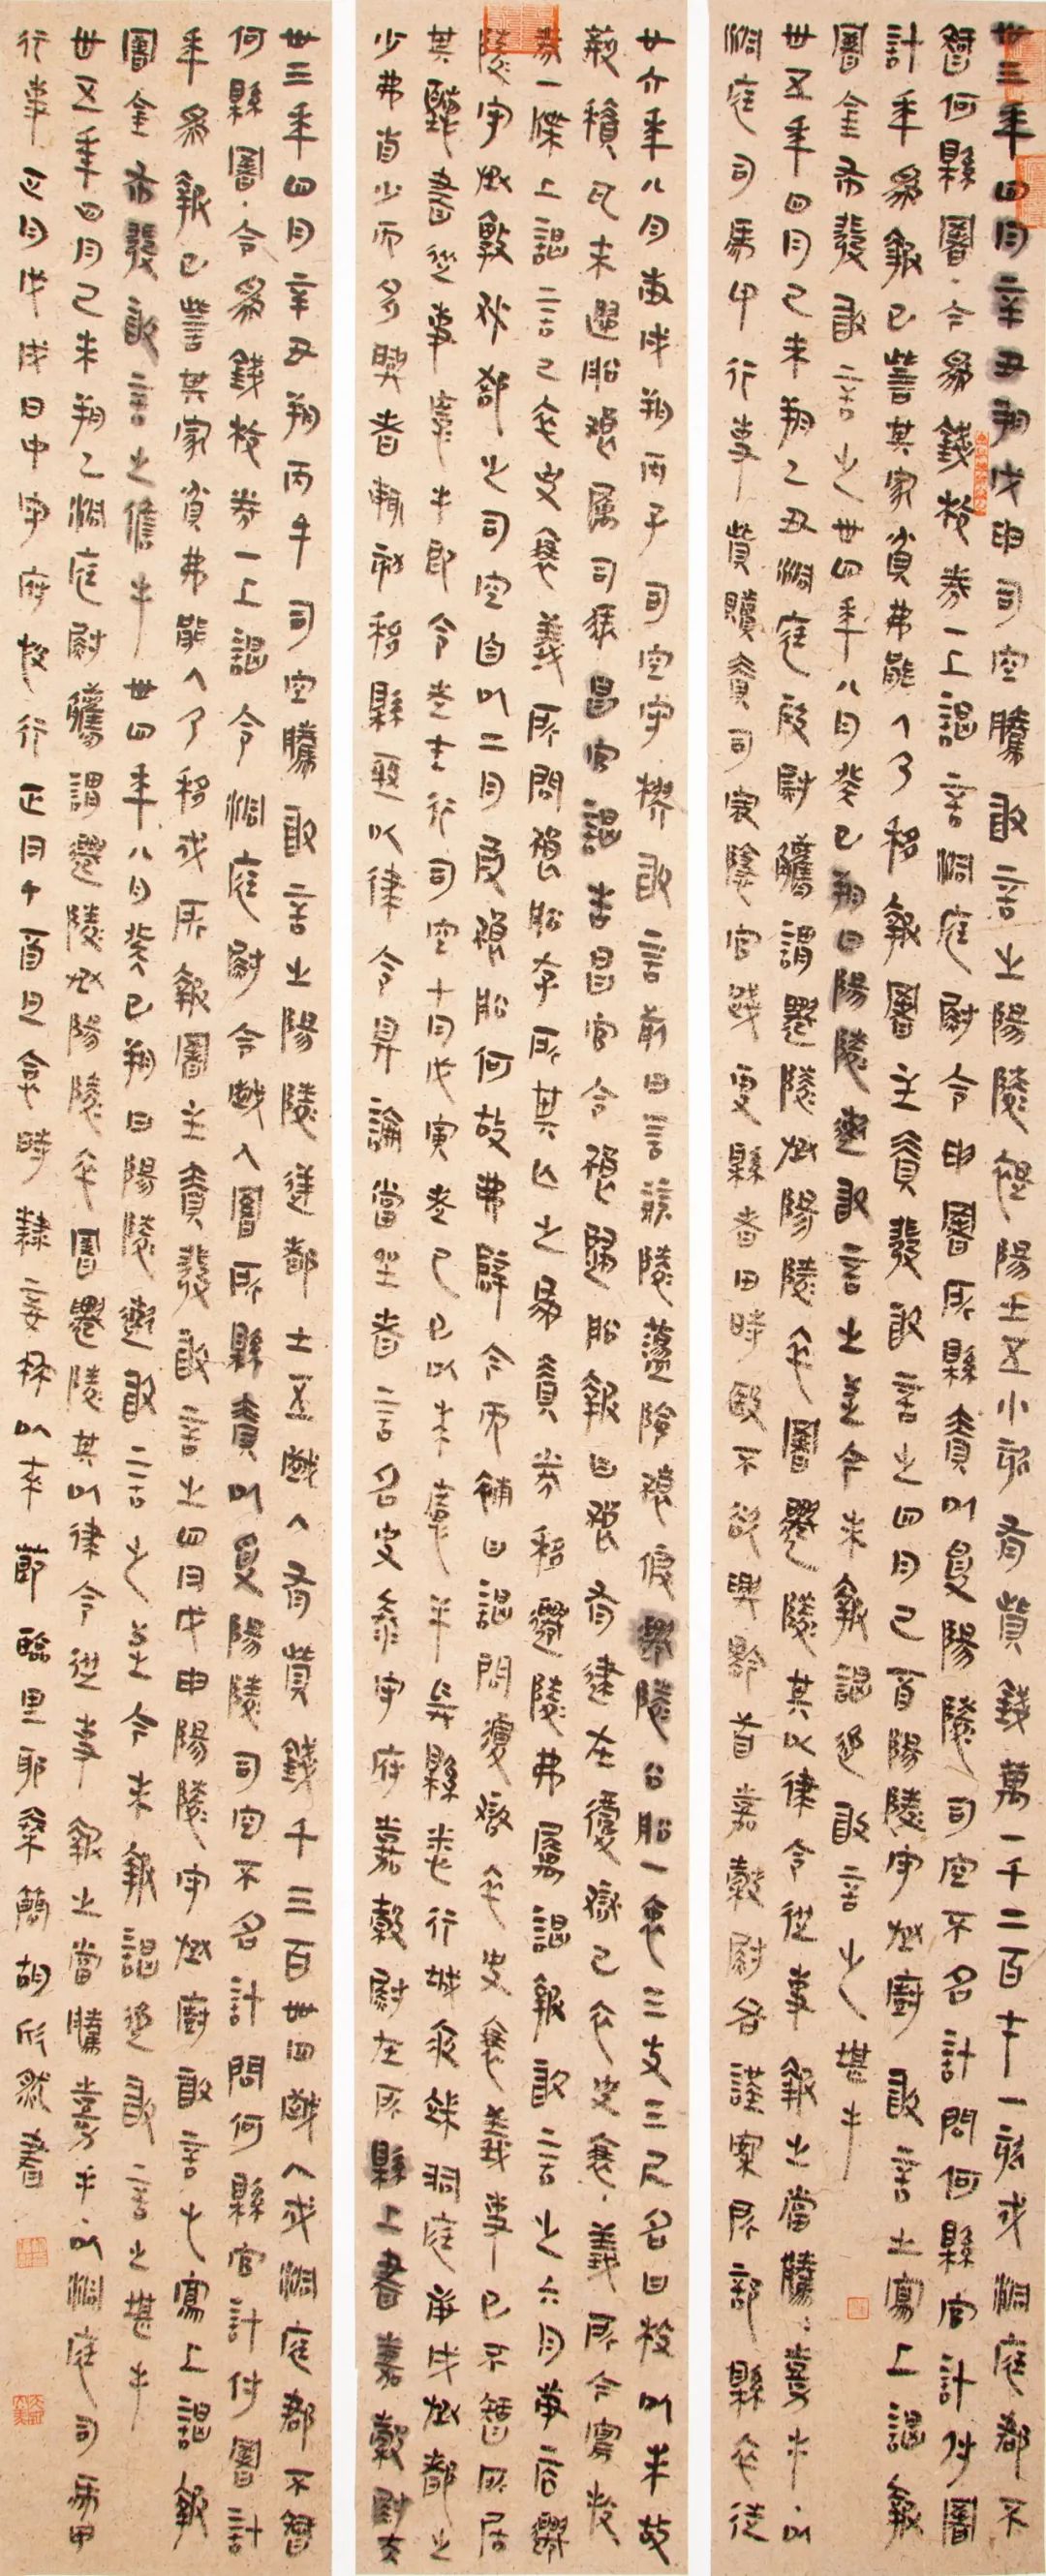 卅三年四月辛丑朔戊申司空騰敢言之陽陵褆陽士五小欬有貲錢萬一千二百七十一欬戍洞庭郡不
智何縣署·今為錢校券一上謁言洞庭尉令申署所縣責以受陽陵司空不名計問何縣官計付署
計年為報已訾其家貧弗能入乃移報署主責發敢言之四月己酉陽陵守丞廚敢言之寫上謁報
署金布發敢言之卅四年八月癸巳朔日陽陵遬敢言之至今未報謁追敢言之堪手
卅五年四月己未朔乙丑洞庭叚尉觿謂遷陵丞陽陵卒署遷陵其以律令從事報之當騰、嘉手·以
洞庭司馬甲行事 貲贖責司寇隱官踐更縣者田時殹不欲興黔首嘉穀尉各謹案所部縣卒徒
廿六年八月庚戌朔丙子司空守樛敢言前日言競陵蘯陰狼假遷陵公船一袤三丈三尺名曰柂以求故
荊積瓦未歸船狼屬司馬昌官謁告昌官令狼歸船報曰狼有逮在覆獄已卒史衰·義所今寫校
券一牒上謁言已卒史衰義所問狼船存所其亡之為責券移遷陵弗屬謁報敢言之六月庚辰遷
陵守丞敦狐卻之司空自以二月叚狼船何故弗辟今而補曰謁問覆獄卒史衰義事已不智所居
其聽書從事慶手即令走主行司空十月戊寅走己巳以來慶半
少弗省少而多興者輒劾移縣亟以律令具論當坐者言名史泰守府嘉穀尉在所縣上書嘉穀尉
卅三年四月辛丑朔丙午司空騰敢言之陽陵逆都士五鹽人有貲錢千三百卌四鹽人戍洞庭郡不智
何縣署·今為錢校券一上謁令洞庭尉令鹽人署所縣責以受陽陵司空不名計問何縣官計付署計
年為報已訾其家貧弗能入乃移戍所報署主責發敢言之四月戊申陽陵守丞廚敢言之寫上謁報
署金布發敢言之儋手 卅四年八月癸巳朔日陽陵遬敢言之至今未報謁追敢言之堪手
卅五年四月己未朔乙洞庭尉觿謂遷陵丞陽陵卒署遷陵其以律令從事報之當騰嘉手·以洞庭司馬甲
行事 正月戊戌日中守府快行正月丁酉旦食時隸妾冉以來 節臨里耶秦簡胡欣然書